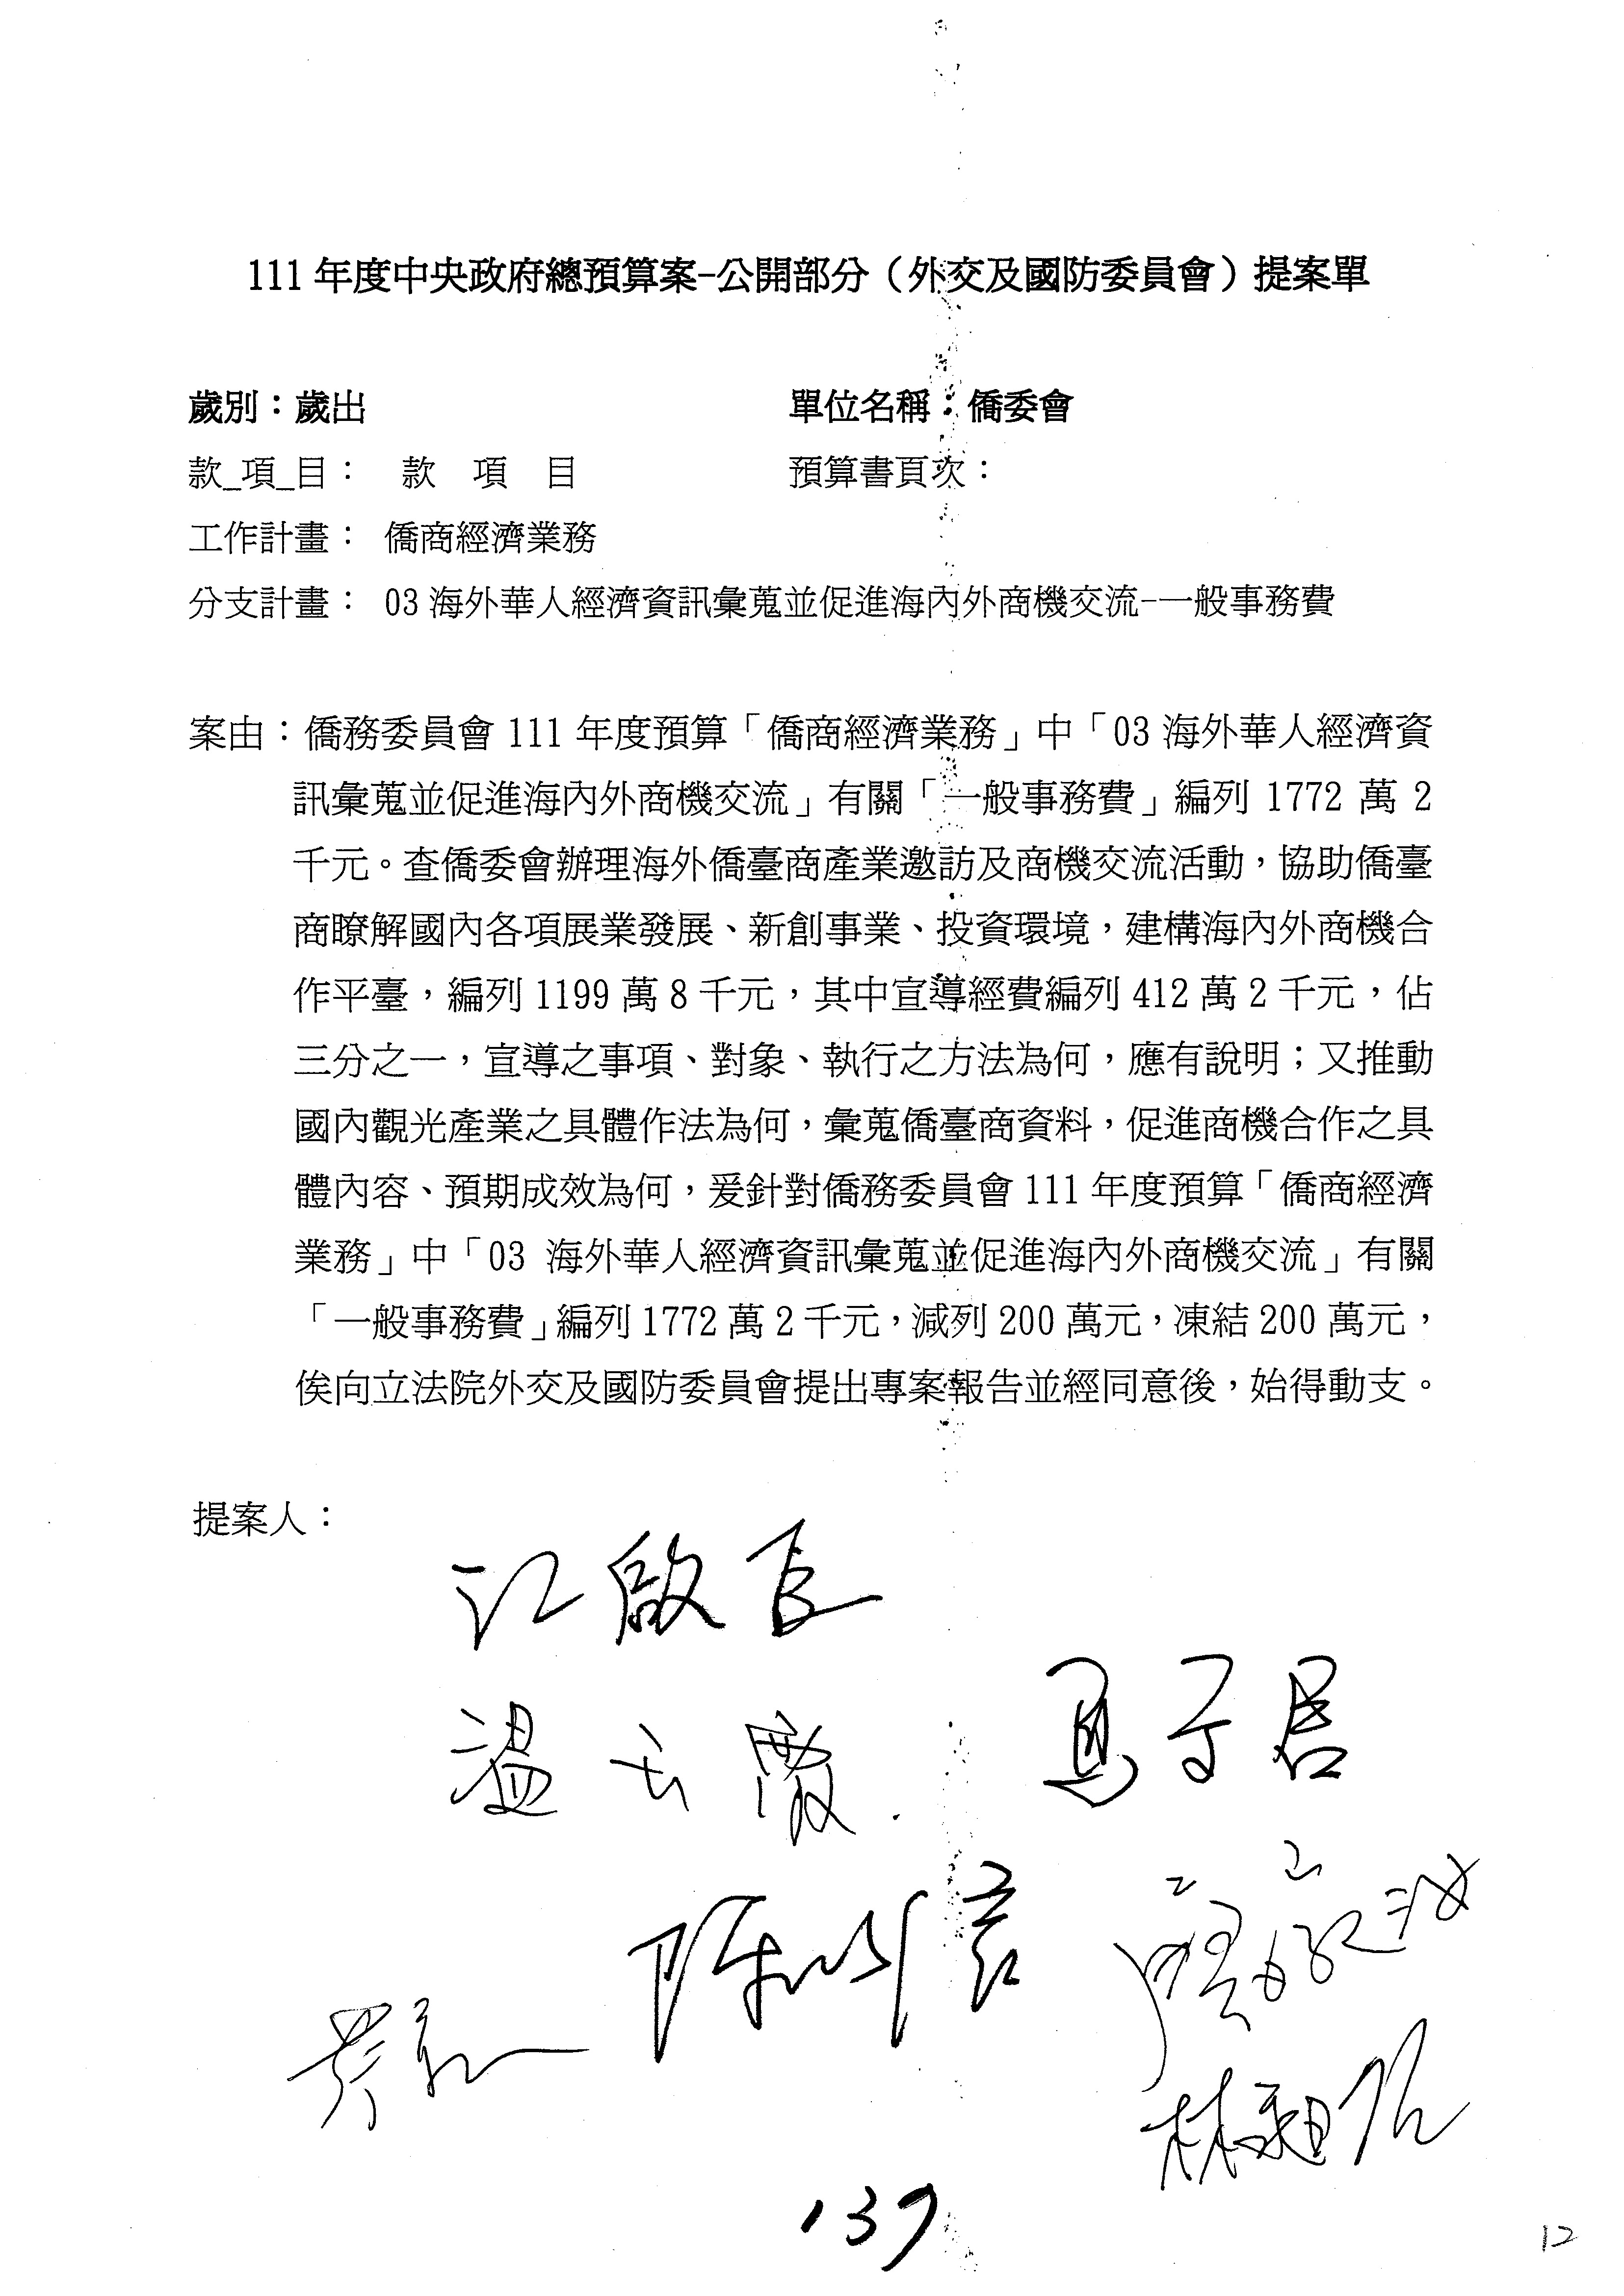 111 年度中央政府總預算案-公開部分（外交及國防委員會）提案單
歲別：歲出 單位名稱：僑委會
款_項_目： 款 項 目 預算書頁次：
工作計畫： 僑商經濟業務
分支計畫： 03 海外華人經濟資訊彙蒐並促進海內外商機交流-一般事務費
案由：僑務委員會 111 年度預算「僑商經濟業務」中「03 海外華人經濟資
訊彙蒐並促進海內外商機交流」有關「一般事務費」編列 1772 萬 2
千元。查僑委會辦理海外僑臺商產業邀訪及商機交流活動，協助僑臺
商瞭解國內各項展業發展、新創事業、投資環境，建構海內外商機合
作平臺，編列 1199 萬 8 千元，其中宣導經費編列 412 萬 2 千元，佔
三分之一，宣導之事項、對象、執行之方法為何，應有說明；又推動
國內觀光產業之具體作法為何，彙蒐僑臺商資料，促進商機合作之具
體內容、預期成效為何，爰針對僑務委員會 111 年度預算「僑商經濟
業務」中「03 海外華人經濟資訊彙蒐並促進海內外商機交流」有關
「一般事務費」編列 1772 萬 2 千元，減列 200 萬元，凍結 200 萬元，
俟向立法院外交及國防委員會提出專案報告並經同意後，始得動支。
提案人：
江啟臣
溫玉霞 馬文君
陳以信
林昶佐
137
12